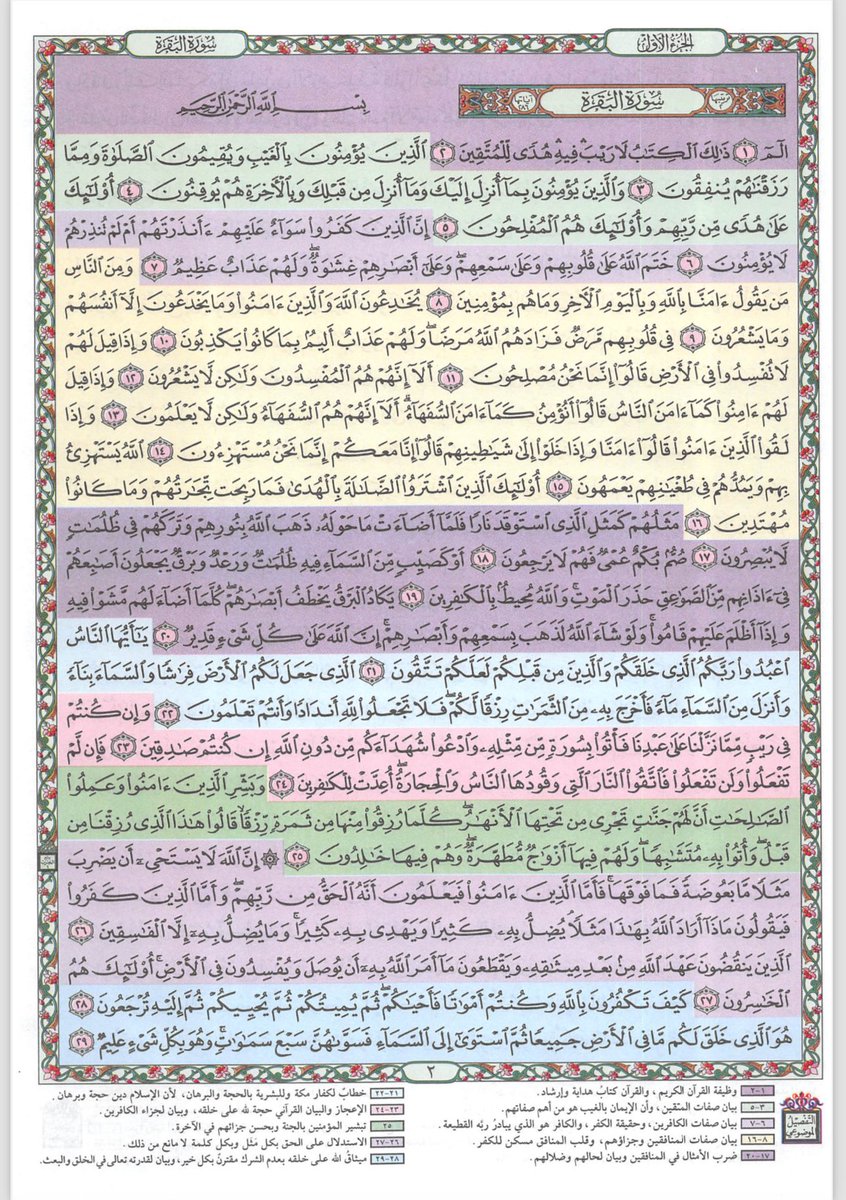 الجزء الأول
سورة البقرة
ترتيبها ٢
سورة البقرة
آياتها ٢٨٦
بِسْمِ ٱللَّهِ ٱلرَّحْمَٰنِ ٱلرَّحِيمِ
الٓمٓ ١ ذَٰلِكَ ٱلْكِتَٰبُ لَا رَيْبَ ۛ فِيهِ ۛ هُدًى لِّلْمُتَّقِينَ ٢ ٱلَّذِينَ يُؤْمِنُونَ بِٱلْغَيْبِ وَيُقِيمُونَ ٱلصَّلَوٰةَ وَمِمَّا
رَزَقْنَٰهُمْ يُنفِقُونَ ٣ وَٱلَّذِينَ يُؤْمِنُونَ بِمَآ أُنزِلَ إِلَيْكَ وَمَآ أُنزِلَ مِن قَبْلِكَ وَبِٱلْءَاخِرَةِ هُمْ يُوقِنُونَ ٤ أُو۟لَٰٓئِكَ
عَلَىٰ هُدًى مِّن رَّبِّهِمْ وَأُو۟لَٰٓئِكَ هُمُ ٱلْمُفْلِحُونَ ٥ إِنَّ ٱلَّذِينَ كَفَرُوا۟ سَوَآءٌ عَلَيْهِمْ ءَأَنذَرْتَهُمْ أَمْ لَمْ تُنذِرْهُمْ
لَا يُؤْمِنُونَ ٦ خَتَمَ ٱللَّهُ عَلَىٰ قُلُوبِهِمْ وَعَلَىٰ سَمْعِهِمْ ۖ وَعَلَىٰٓ أَبْصَٰرِهِمْ غِشَٰوَةٌ ۖ وَلَهُمْ عَذَابٌ عَظِيمٌ ٧ وَمِنَ ٱلنَّاسِ
مَن يَقُولُ ءَامَنَّا بِٱللَّهِ وَبِٱلْيَوْمِ ٱلْءَاخِرِ وَمَا هُم بِمُؤْمِنِينَ ٨ يُخَٰدِعُونَ ٱللَّهَ وَٱلَّذِينَ ءَامَنُوا۟ وَمَا يَخْدَعُونَ إِلَّآ أَنفُسَهُمْ
وَمَا يَشْعُرُونَ ٩ فِى قُلُوبِهِم مَّرَضٌ فَزَادَهُمُ ٱللَّهُ مَرَضًا ۖ وَلَهُمْ عَذَابٌ أَلِيمٌۢ بِمَا كَانُوا۟ يَكْذِبُونَ ١٠ وَإِذَا قِيلَ لَهُمْ
لَا تُفْسِدُوا۟ فِى ٱلْأَرْضِ قَالُوٓا۟ إِنَّمَا نَحْنُ مُصْلِحُونَ ١١ أَلَآ إِنَّهُمْ هُمُ ٱلْمُفْسِدُونَ وَلَٰكِن لَّا يَشْعُرُونَ ١٢ وَإِذَا قِيلَ
لَهُمْ ءَامِنُوا۟ كَمَآ ءَامَنَ ٱلنَّاسُ قَالُوٓا۟ أَنُؤْمِنُ كَمَآ ءَامَنَ ٱلسُّفَهَآءُ ۗ أَلَآ إِنَّهُمْ هُمُ ٱلسُّفَهَآءُ وَلَٰكِن لَّا يَعْلَمُونَ ١٣ وَإِذَا
لَقُوا۟ ٱلَّذِينَ ءَامَنُوا۟ قَالُوٓا۟ ءَامَنَّا وَإِذَا خَلَوْا۟ إِلَىٰ شَيَٰطِينِهِمْ قَالُوٓا۟ إِنَّا مَعَكُمْ إِنَّمَا نَحْنُ مُسْتَهْزِءُونَ ١٤ ٱللَّهُ يَسْتَهْزِئُ
بِهِمْ وَيَمُدُّهُمْ فِى طُغْيَٰنِهِمْ يَعْمَهُونَ ١٥ أُو۟لَٰٓئِكَ ٱلَّذِينَ ٱشْتَرَوُا۟ ٱلضَّلَٰلَةَ بِٱلْهُدَىٰ فَمَا رَبِحَت تِّجَٰرَتُهُمْ وَمَا كَانُوا۟
مُهْتَدِينَ ١٦ مَثَلُهُمْ كَمَثَلِ ٱلَّذِى ٱسْتَوْقَدَ نَارًا فَلَمَّآ أَضَآءَتْ مَا حَوْلَهُۥ ذَهَبَ ٱللَّهُ بِنُورِهِمْ وَتَرَكَهُمْ فِى ظُلُمَٰتٍ
لَّا يُبْصِرُونَ ١٧ صُمٌّۢ بُكْمٌ عُمْىٌ فَهُمْ لَا يَرْجِعُونَ ١٨ أَوْ كَصَيِّبٍ مِّنَ ٱلسَّمَآءِ فِيهِ ظُلُمَٰتٌ وَرَعْدٌ وَبَرْقٌ يَجْعَلُونَ أَصَٰبِعَهُمْ
فِىٓ ءَاذَانِهِم مِّنَ ٱلصَّوَٰعِقِ حَذَرَ ٱلْمَوْتِ ۚ وَٱللَّهُ مُحِيطٌۢ بِٱلْكَٰفِرِينَ ١٩ يَكَادُ ٱلْبَرْقُ يَخْطَفُ أَبْصَٰرَهُمْ ۖ كُلَّمَآ أَضَآءَ لَهُم مَّشَوْا۟ فِيهِ
وَإِذَآ أَظْلَمَ عَلَيْهِمْ قَامُوا۟ ۚ وَلَوْ شَآءَ ٱللَّهُ لَذَهَبَ بِسَمْعِهِمْ وَأَبْصَٰرِهِمْ ۚ إِنَّ ٱللَّهَ عَلَىٰ كُلِّ شَىْءٍ قَدِيرٌ ٢٠ يَٰٓأَيُّهَا ٱلنَّاسُ
ٱعْبُدُوا۟ رَبَّكُمُ ٱلَّذِى خَلَقَكُمْ وَٱلَّذِينَ مِن قَبْلِكُمْ لَعَلَّكُمْ تَتَّقُونَ ٢١ ٱلَّذِى جَعَلَ لَكُمُ ٱلْأَرْضَ فِرَٰشًا وَٱلسَّمَآءَ بِنَآءً
وَأَنزَلَ مِنَ ٱلسَّمَآءِ مَآءً فَأَخْرَجَ بِهِۦ مِنَ ٱلثَّمَرَٰتِ رِزْقًا لَّكُمْ ۖ فَلَا تَجْعَلُوا۟ لِلَّهِ أَندَادًا وَأَنتُمْ تَعْلَمُونَ ٢٢ وَإِن كُنتُمْ
فِى رَيْبٍ مِّمَّا نَزَّلْنَا عَلَىٰ عَبْدِنَا فَأْتُوا۟ بِسُورَةٍ مِّن مِّثْلِهِۦ وَٱدْعُوا۟ شُهَدَآءَكُم مِّن دُونِ ٱللَّهِ إِن كُنتُمْ صَٰدِقِينَ ٢٣ فَإِن لَّمْ
تَفْعَلُوا۟ وَلَن تَفْعَلُوا۟ فَٱتَّقُوا۟ ٱلنَّارَ ٱلَّتِى وَقُودُهَا ٱلنَّاسُ وَٱلْحِجَارَةُ ۖ أُعِدَّتْ لِلْكَٰفِرِينَ ٢٤ وَبَشِّرِ ٱلَّذِينَ ءَامَنُوا۟ وَعَمِلُوا۟
ٱلصَّٰلِحَٰتِ أَنَّ لَهُمْ جَنَّٰتٍ تَجْرِى مِن تَحْتِهَا ٱلْأَنْهَٰرُ ۖ كُلَّمَا رُزِقُوا۟ مِنْهَا مِن ثَمَرَةٍ رِّزْقًا ۙ قَالُوا۟ هَٰذَا ٱلَّذِى رُزِقْنَا مِن
قَبْلُ ۖ وَأُتُوا۟ بِهِۦ مُتَشَٰبِهًا ۖ وَلَهُمْ فِيهَآ أَزْوَٰجٌ مُّطَهَّرَةٌ ۖ وَهُمْ فِيهَا خَٰلِدُونَ ٢٥ ۞ إِنَّ ٱللَّهَ لَا يَسْتَحْىِۦٓ أَن يَضْرِبَ
مَثَلًا مَّا بَعُوضَةً فَمَا فَوْقَهَا ۚ فَأَمَّا ٱلَّذِينَ ءَامَنُوا۟ فَيَعْلَمُونَ أَنَّهُ ٱلْحَقُّ مِن رَّبِّهِمْ ۖ وَأَمَّا ٱلَّذِينَ كَفَرُوا۟
فَيَقُولُونَ مَاذَآ أَرَادَ ٱللَّهُ بِهَٰذَا مَثَلًا ۘ يُضِلُّ بِهِۦ كَثِيرًا وَيَهْدِى بِهِۦ كَثِيرًا ۚ وَمَا يُضِلُّ بِهِۦٓ إِلَّا ٱلْفَٰسِقِينَ ٢٦
ٱلَّذِينَ يَنقُضُونَ عَهْدَ ٱللَّهِ مِنۢ بَعْدِ مِيثَٰقِهِۦ وَيَقْطَعُونَ مَآ أَمَرَ ٱللَّهُ بِهِۦٓ أَن يُوصَلَ وَيُفْسِدُونَ فِى ٱلْأَرْضِ ۚ أُو۟لَٰٓئِكَ هُمُ
ٱلْخَٰسِرُونَ ٢٧ كَيْفَ تَكْفُرُونَ بِٱللَّهِ وَكُنتُمْ أَمْوَٰتًا فَأَحْيَٰكُمْ ۖ ثُمَّ يُمِيتُكُمْ ثُمَّ يُحْيِيكُمْ ثُمَّ إِلَيْهِ تُرْجَعُونَ ٢٨
هُوَ ٱلَّذِى خَلَقَ لَكُم مَّا فِى ٱلْأَرْضِ جَمِيعًا ثُمَّ ٱسْتَوَىٰٓ إِلَى ٱلسَّمَآءِ فَسَوَّىٰهُنَّ سَبْعَ سَمَٰوَٰتٍ ۚ وَهُوَ بِكُلِّ شَىْءٍ عَلِيمٌ ٢٩
٢
التفصيل الموضوعي
١-٢ وظيفة القرآن الكريم، والقرآن كتابُ هداية وإرشاد.
٣-٥ بيان صفات المتّقين، وأن الإيمان بالغيب هو من أهم صفاتهم.
٦-٧ بيان صفات الكافرين، وحقيقة الكفر، والكافر هو الذي يبادرُ ربَّه القطيعة.
٨-١٦ بيان صفات المنافقين وجزاؤهم، وقلب المنافق مسكن للكفر.
١٧-٢٠ ضرب الأمثال في المنافقين وبيان لحالهم وضلالهم.
٢١-٢٢ خطابٌ لكفار مكة وللبشرية بالحجة والبرهان، لأن الإسلام دين حجة وبرهان.
٢٣-٢٤ الإعجاز والبيان القرآني حجة لله على خلقه، وبيان لجزاء الكافرين.
٢٥ تبشير المؤمنين بالجنة وبحسن جزائهم في الآخرة.
٢٦-٢٧ الاستدلال على الحق بكل مَثل وبكل كلمة لا مانع من ذلك.
٢٨-٢٩ ميثاقُ الله على خلقه بعدم الشرك مقترنٌ بكل خير، وبيان لقدرته تعالى في الخلق والبعث.